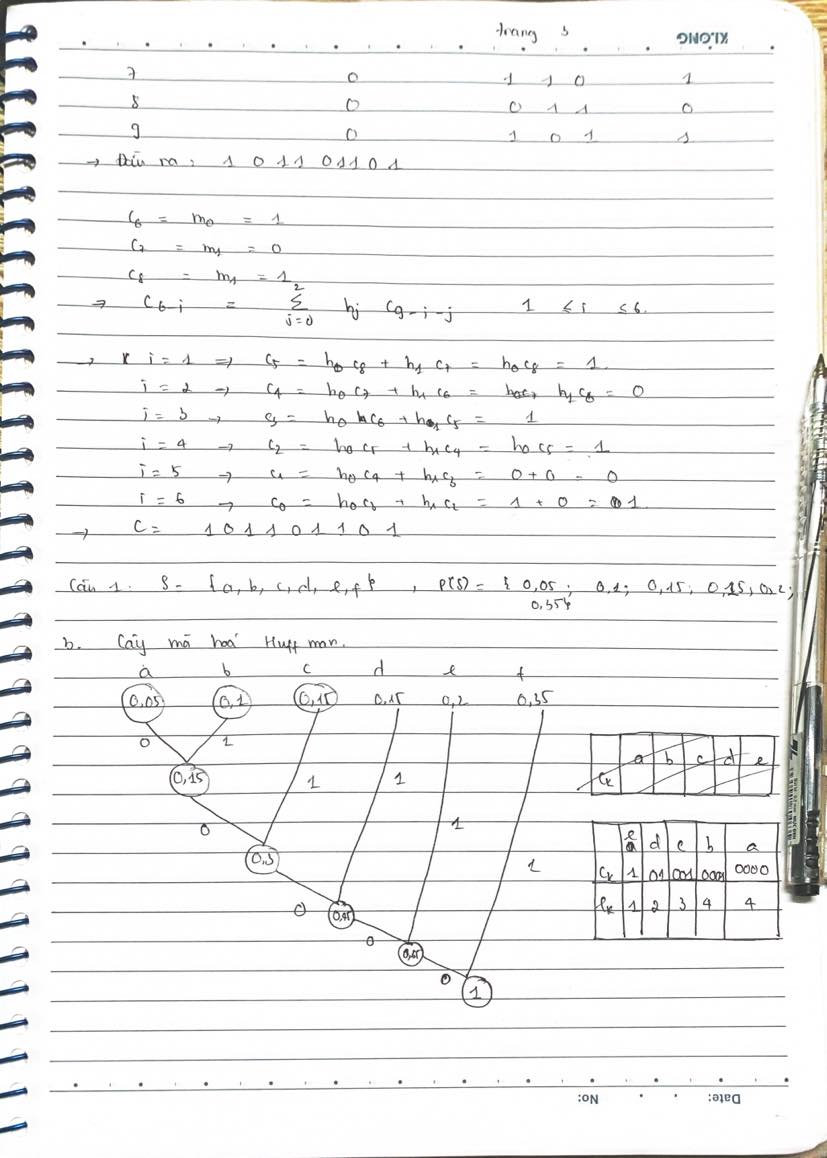 trang 5 KLONG
7 0 1 1 0 1
8 0 0 1 1 0
9 0 1 0 1 1
→ Đầu ra: 1 0 1 1 0 1 1 0 1
C6 = m0 = 1
C7 = m1 = 0
C8 = m1 = 1
2
⇒ C6-i = Σ hj C9-i-j 1 ≤ i ≤ 6.
j=0
→ i = 1 ⇒ C5 = h0 C8 + h1 C7 = h0 C8 = 1.
i = 2 → C4 = h0 C7 + h1 C6 = h1 C6 = 0
i = 3 → C3 = h0 C6 + h1 C5 = 1
i = 4 → C2 = h0 C5 + h1 C4 = h0 C5 = 1
i = 5 → C1 = h0 C4 + h1 C3 = 0 + 0 = 0
i = 6 → C0 = h0 C3 + h1 C2 = 1 + 0 = 1.
→ C = 1 0 1 1 0 1 1 0 1
Câu 1: S = {a, b, c, d, e, f} , P(S) = { 0,05; 0,1; 0,15; 0,15; 0,2;
0,35}
b. Cây mã hoá Huffman.
a b c d e f
0,05 0,1 0,15 0,15 0,2 0,35
0 1
0,15 1 1
0 1
0,3 1
0
0,45
0
0,65
0
1
a b c d e
Ck
e d c b a
Ck 1 01 001 0001 0000
lk 1 2 3 4 4
Date: No: